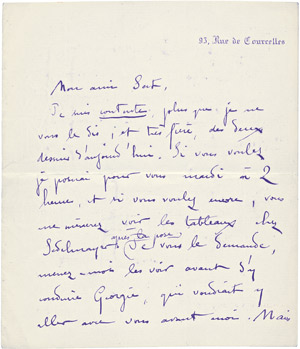 93, Rue de Courcelles
Mon ami Sert,
Je suis contente, plus que je ne
vous le dis ; et très fière, des deux
dessins d'aujourd'hui. Si vous voulez
je poserai pour vous mardi à 2
heures, et si vous voulez encore, vous
me mènerez voir les tableaux chez
après la pose
(Je vous le demande,
menez-mois les voir avant d'y
conduire Georgie, qui voudrait y
aller avec vous avant moi. Mais